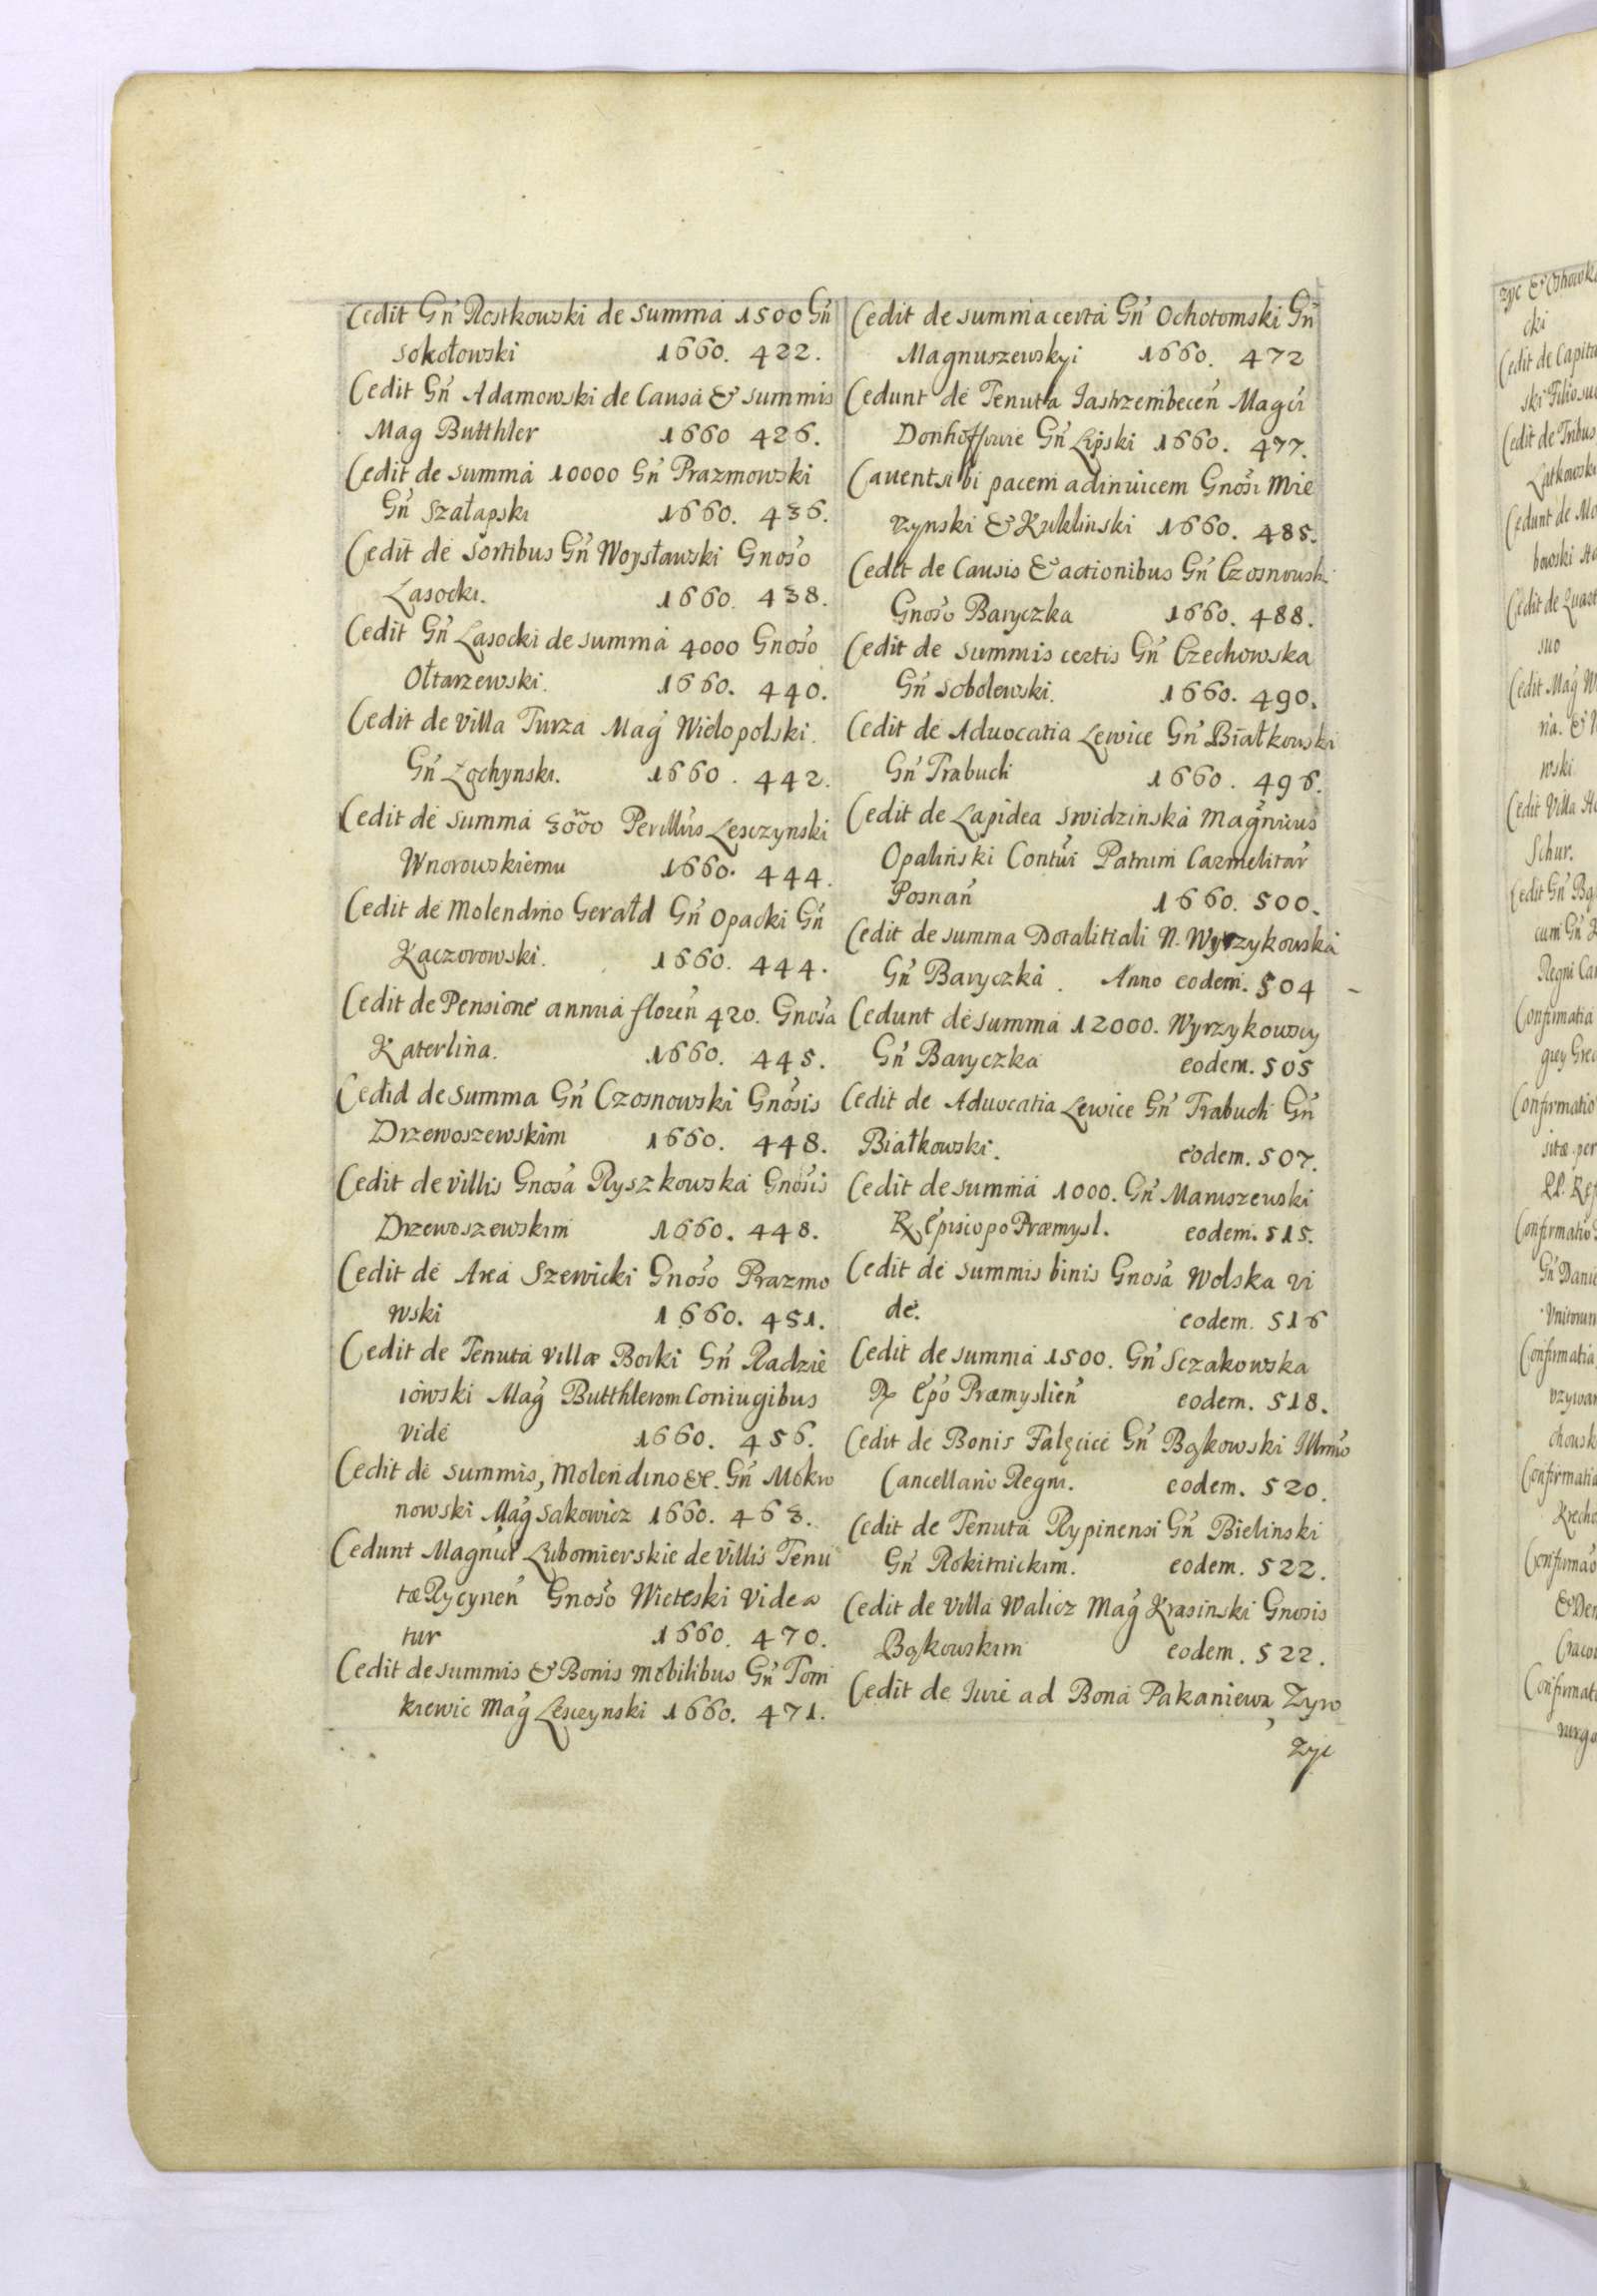 Cedit Gn̄ Rostkowski de Summa 1500 Gn̄
Sokołowski 1660. 422.
Cedit Gn̄ Adamowski de Causa & summis
Mag Butthler 1660 426.
Cedit de summa 10000 Gn̄ Prazmowski
Gn̄ Szałapski 1660. 436.
Cedit de Sortibus Gn̄ Woysławski Gnoso
Lasocki. 1660. 438.
Cedit Gn̄ Lasocki de summa 4000 Gnoso
Ołtarzewski. 1660. 440.
Cedit de Villa Turza Mag Wielopolski.
Gn̄ Łochynski. 1660. 442.
Cedit de summa Perillus Lesczynski
Wnorowskiemu 1660. 444.
Cedit de Molendino Gerałd Gn̄ Opacki Gn̄
Kaczorowski. 1660. 444.
Cedit de Pensione annua floren 420. Gnosa
Katerlina. 1660. 445.
Cedid de Summa Gn̄ Czosnowski Gnosis
Drzewoszewskim 1660. 448.
Cedit de villis Gnosa Ryszkowska Gnosis
Drzewoszewskim 1660. 448.
Cedit de Area Szewicki Gnoso Prazmo
wski 1660. 451.
Cedit de Tenuta villæ Borki Gn̄ Radzie
iowski Mag Butthlerom Coniugibus
vide 1660. 456.
Cedit de summis, Molendino &c. Gn̄ Mokro
nowski Mag Sakowicz 1660. 463.
Cedunt Lubomierskie de Villis Tenu
tæ Rycynen Gnoso Wieteski Videa
tur 1660. 470.
Cedit de summis & Bonis mobilibus Gn̄ Tom
kiewic Mag Lesczynski 1660. 471.
Cedit de summa certa Gn̄ Ochotomski Gn̄
Magnuszewskyi 1660. 472
Cedunt de Tenuta Iastrzembecen
Gn̄ Lipski 1660. 477.
Cauent sibi pacem adinuicem Gnosi Mie
rzynski & Kuklinski 1660. 485.
Cedit de Causis & actionibus Gn̄ Czosnowski
Gnoso Baryczka 1660. 488.
Cedit de summis certis Gn̄ Czechowska
Gn̄ Sobolewski. 1660. 490.
Cedit de Aduocatia Lewice Gn̄ Białkowski
Gn̄ Trabuch 1660. 496.
Cedit de Lapidea Swidzinska Magnicus
Opaliński Contui Patrum Carmelitar
Posnan 1660. 500.
Cedit de summa Dotalitiali N. Wyrzykowska
Gn̄ Baryczka. Anno eodem. 504
Cedunt de summa 12000. Wyrzykowscy
Gn̄ Baryczka eodem. 505
Cedit de Aduocatia Lewice Gn̄ Trabuch Gn̄
Białkowski. eodem. 507.
Cedit de summa 1000. Gn̄ Maruszewski
R Episcopo Præmysl. eodem. 515.
Cedit de summis binis Gnosa Wolska vi
de. eodem. 516
Cedit de summa 1500. Gn̄ Sczakowska
R Epo Præmyslien eodem. 518.
Cedit de Bonis Falęcice Gn̄ Bąkowski Illmo
Cancellario Regni. eodem. 520.
Cedit de Tenuta Rypinensi Gn̄ Bielinski
Gn̄ Rokitnickim. eodem. 522.
Cedit de Villa Walicz Mag Krasinski Gnosis
Bąkowskim eodem. 522.
Cedit de Iure ad Bona Pakaniewa, Zyro
zyc